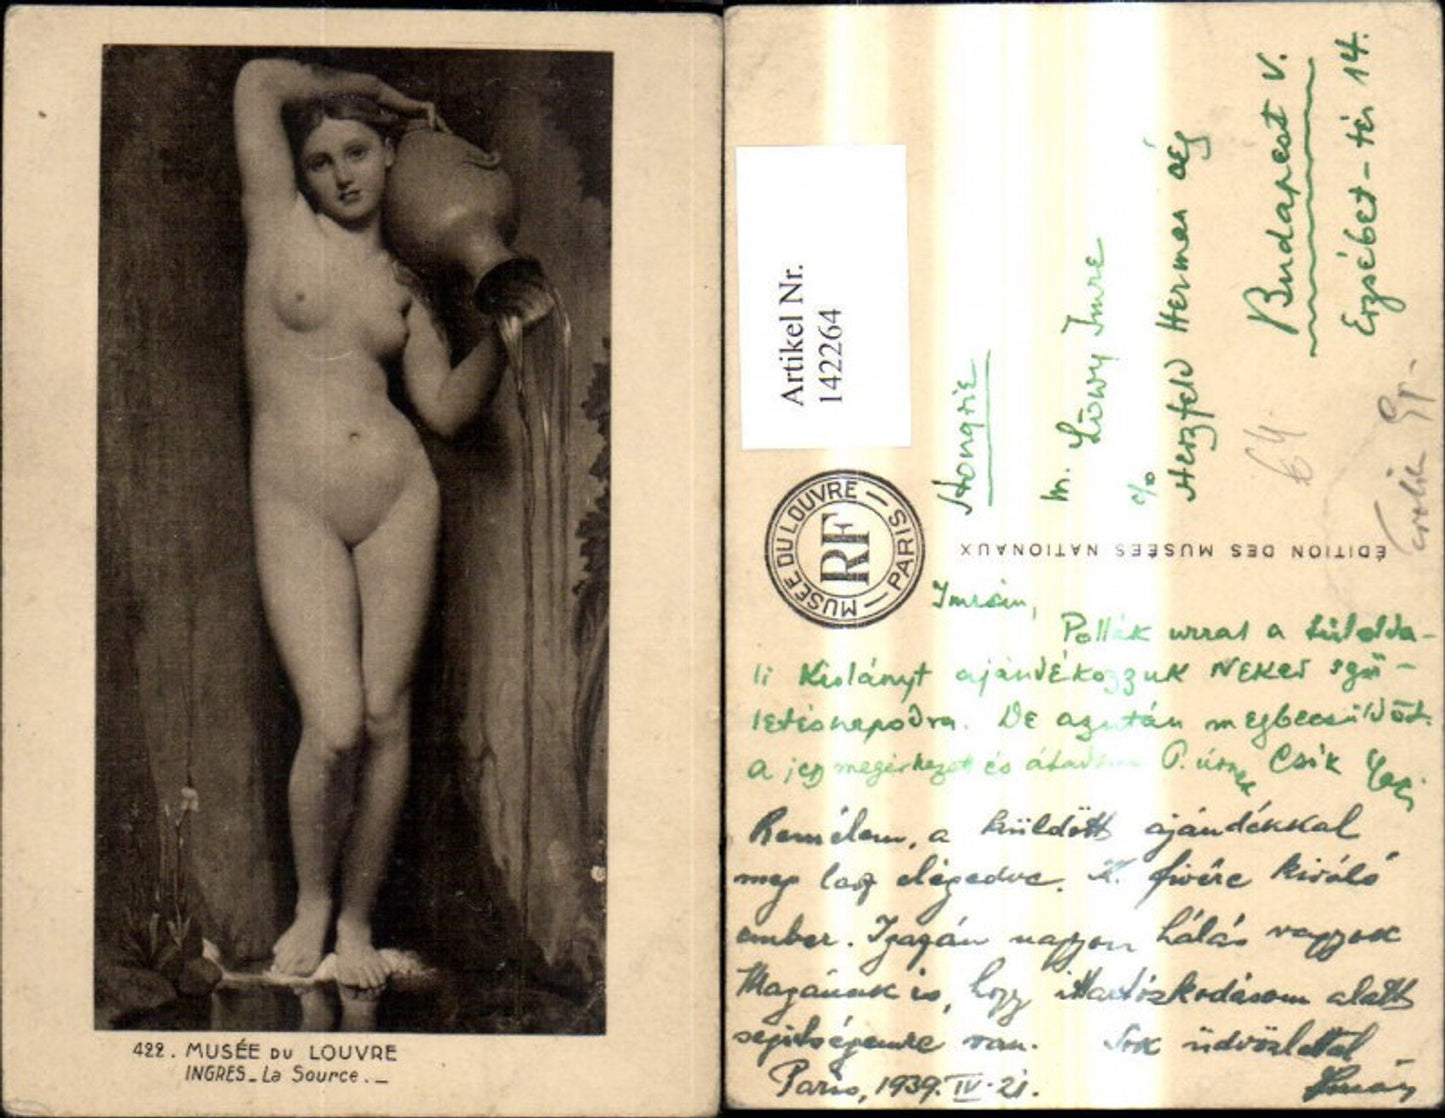 422. MUSÉE DU LOUVRE
INGRES_La Source._
Artikel Nr.
142264
MUSÉE DU LOUVRE — PARIS —
RF
Hongrie
M. Löwy Imre
c/o
Herzfeld Herman cég
Budapest V.
Erzsébet-tér 14.
64
ÉDITION DES MUSÉES NATIONAUX
Imrém,
Pollák urral a túlolda-
li kislányt ajándékozzuk Neked szü-
letésnapodra. De azután megbecsüld őt.
A jegy megérkezett és P. úrnak Csók
Remélem, a küldött ajándékkal
meg lesz elégedve. K. fivére kiváló
ember. Igazán nagyon hálás vagyok
Magának is, hogy itt tartózkodásom alatt
segítségemre van. Sok üdvözlettel
Paris, 1939. IV. 21.